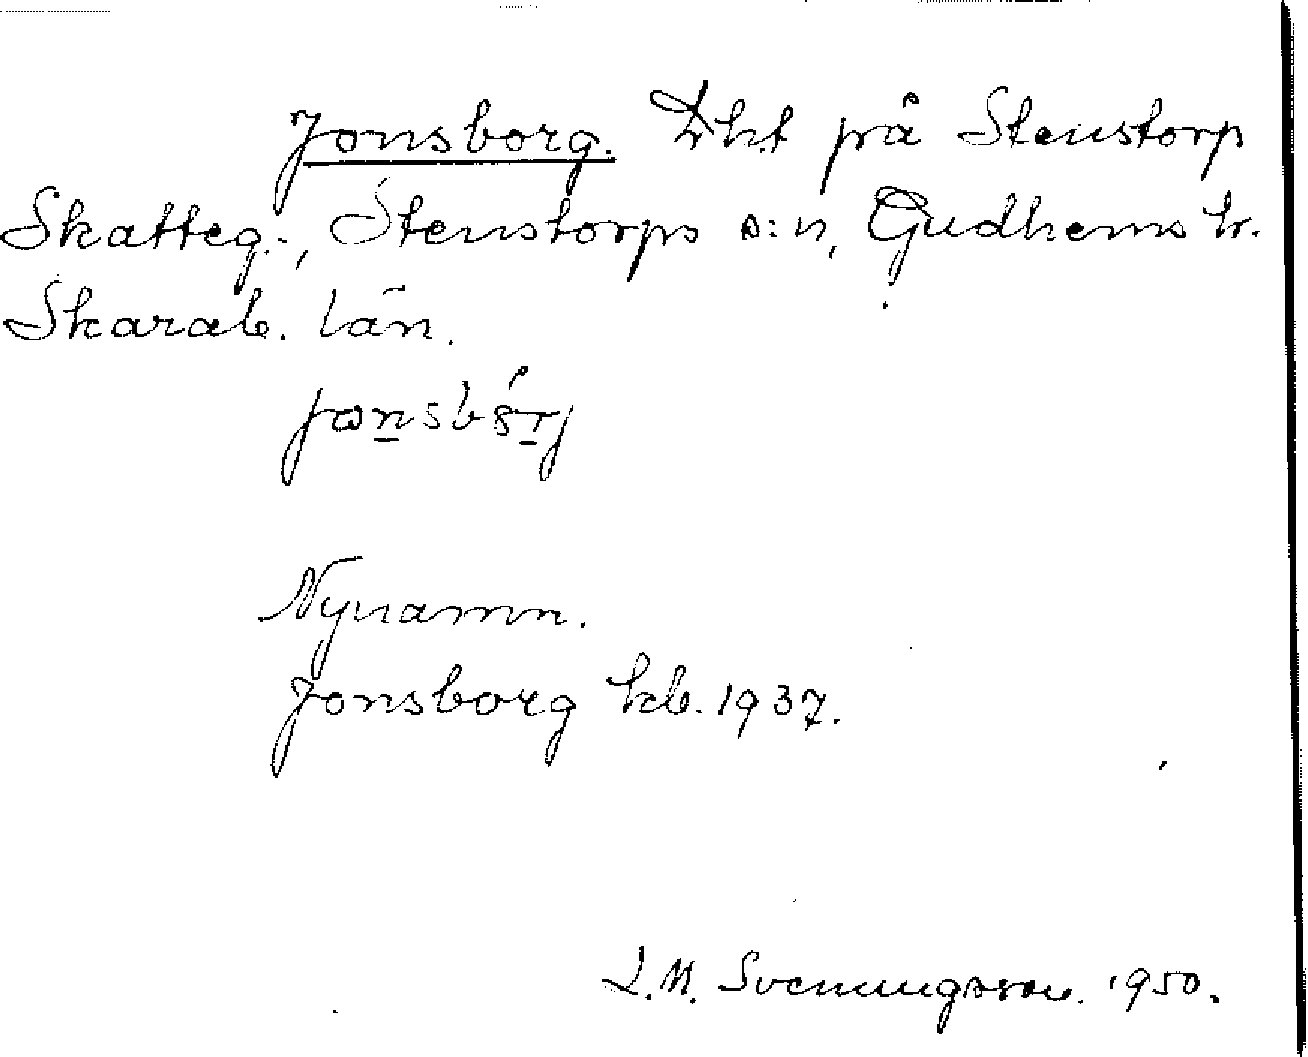 Jonsborg. Lht på Stenstorp
Skatteg., Stenstorps s:n, Gudhems hr.
Skarab. län.
Nynamn.
Jonsborg kb. 1937.
L.M. Svenningsson. 1950.